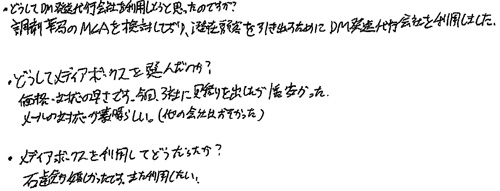 ・どうしてDM発送代行会社を利用しようと思ったのですか?
調剤薬局のM&Aを検討しており、潜在顧客を引き出すためにDM発送代行会社を利用しました。
・どうしてメディアボックスを選んだのか?
価格・対応の早さです。今回、3社に見積りを出したが1番安かった。
メールの対応が素晴らしい。(他の会社は遅かった)
・メディアボックスを利用してどうだったか?
かったです。また利用したい。